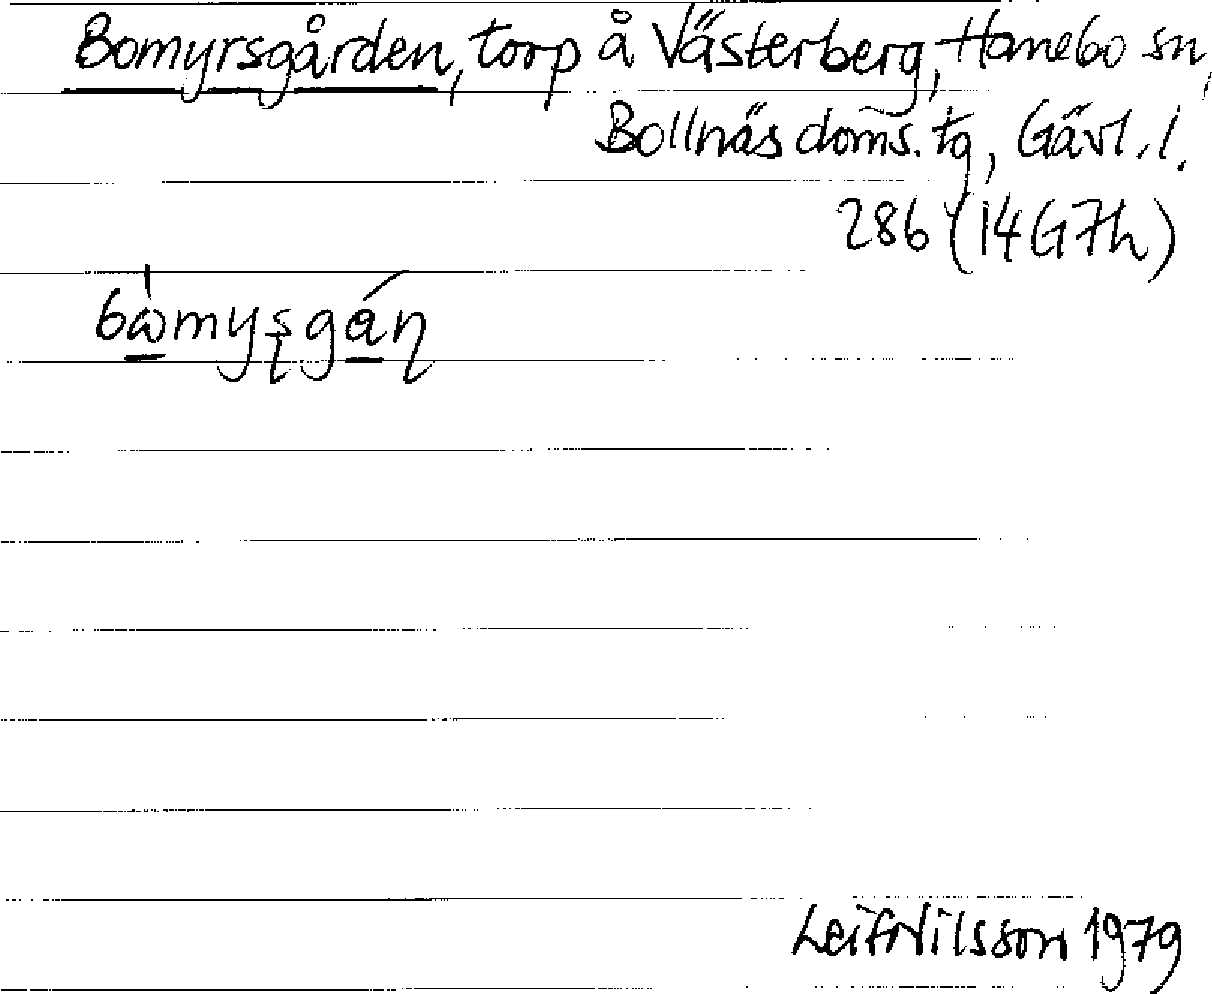 Bomyrsgården, torp å Västerberg, Hanebo sn,
Bollnäs doms. tg, Gävl. l.
286 (14G7h)
Leif Nilsson 1979